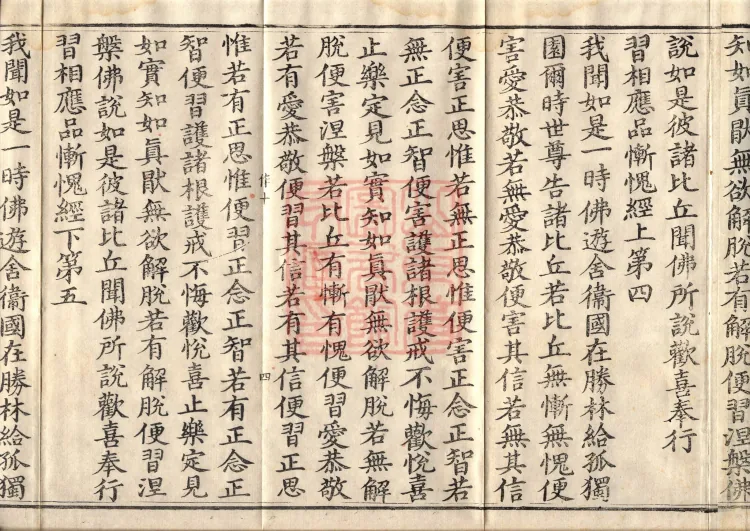 知如真猒無欲解脫若有解脫便習涅槃佛
說如是彼諸比丘聞佛所說歡喜奉行
習相應品慚愧經上第四
我聞如是一時佛遊舍衛國在勝林給孤獨
園爾時世尊告諸比丘若比丘無慚無愧便
害愛恭敬若無愛恭敬便害其信若無其信
便害正思惟若無正思惟便害正念正智若
無正念正智便害護諸根護戒不悔歡悅喜
止樂定見如實知如真猒無欲解脫若無解
脫便害涅槃若比丘有慚有愧便習愛恭敬
若有愛恭敬便習其信若有其信便習正思
作十 四
惟若有正思惟便習正念正智若有正念正
智便習護諸根護戒不悔歡悅喜止樂定見
如實知如真猒無欲解脫若有解脫便習涅
槃佛說如是彼諸比丘聞佛所說歡喜奉行
習相應品慚愧經下第五
我聞如是一時佛遊舍衛國在勝林給孤獨